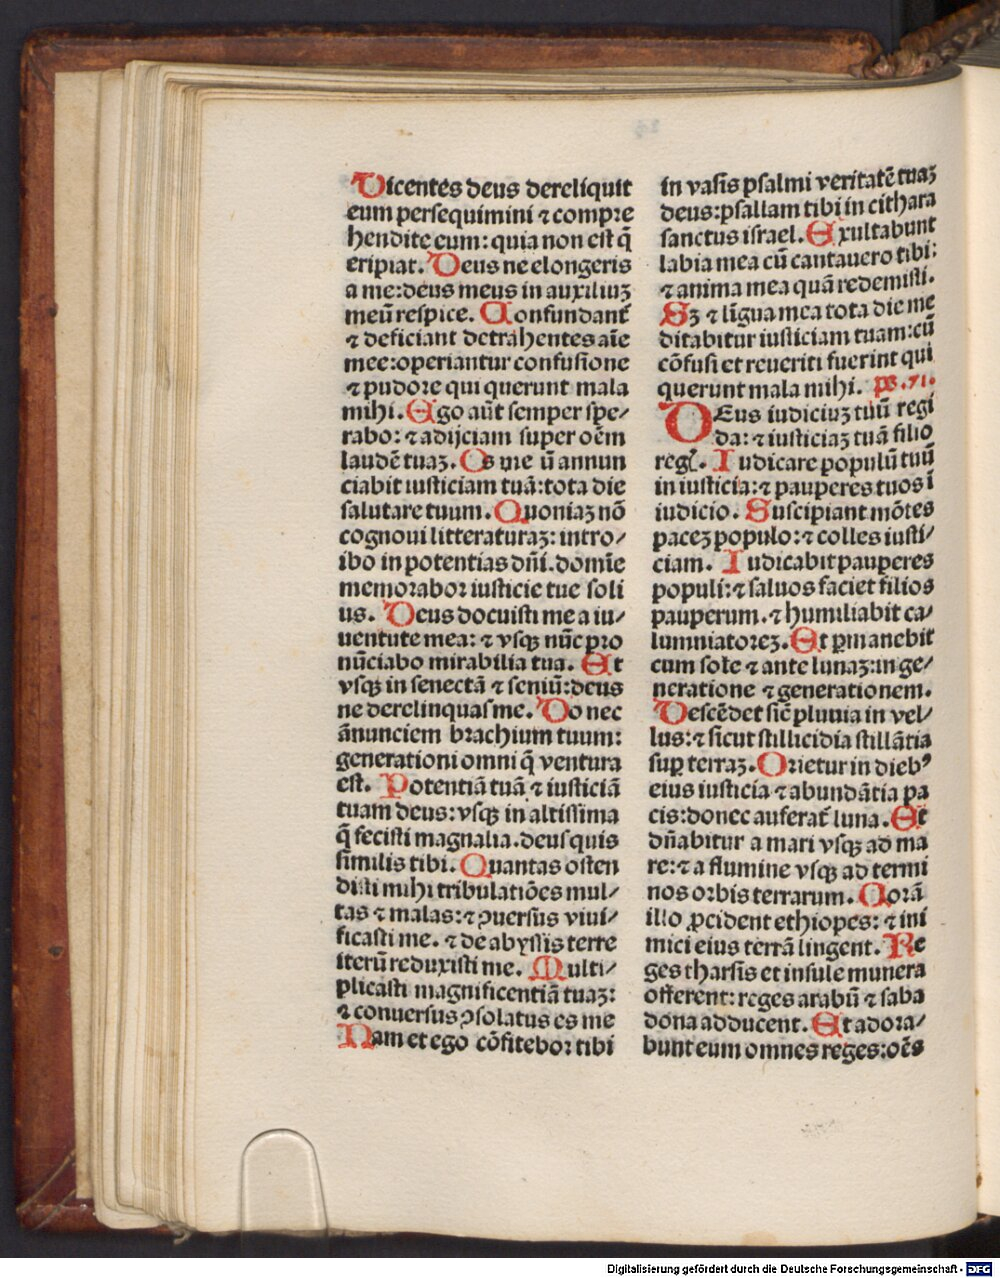 Dicentes deus dereliquit
eum persequimini ⁊ compre
hendite eum: quia non est q̄
eripiat. Deus ne elongeris
a me: deus meus in auxiliuꝫ
meū respice. Confundant᷑
⁊ deficiant detrahentes aīe
mee: operiantur confusione
⁊ pudore qui querunt mala
mihi. Ego aūt semper spe⸗
rabo: ⁊ adijciam super oēm
laudē tuaꝫ. Os meū annun
ciabit iusticiam tuā: tota die
salutare tuum. Quoniaꝫ nō
cognoui litteraturaꝫ: intro⸗
ibo in potentias dn̄i. domīe
memorabor iusticie tue soli
us. Deus docuisti me a iu⸗
uentute mea: ⁊ vsqꝫ nūc pro
nūciabo mirabilia tua. Et
vsqꝫ in senectā ⁊ seniū: deus
ne derelinquas me. Donec
ānunciem brachium tuum:
generationi omni q̄ ventura
est. Potentiā tuā ⁊ iusticiā
tuam deus: vsqꝫ in altissima
q̄ fecisti magnalia. deus quis
similis tibi. Quantas osten
disti mihi tribulatiōes mul⸗
tas ⁊ malas: ⁊ ꝯuersus viui⸗
ficasti me. ⁊ de abyssis terre
iterū reduxisti me. Multi⸗
plicasti magnificentiā tuaꝫ:
⁊ conuersus ꝯsolatus es me
Nam et ego cōfitebor tibi
in vasis psalmi veritatē tuaꝫ
deus: psallam tibi in cithara
sanctus israel. Exultabunt
labia mea cū cantauero tibi:
⁊ anima mea quā redemisti.
Sꝫ ⁊ līgua mea tota die me
ditabitur iusticiam tuam: cū
cōfusi et reueriti fuerint qui
querunt mala mihi. ps. 71.
DEus iudiciuꝫ tuū regi
da: ⁊ iusticiaꝫ tuā filio
reg. Iudicare populū tuū
in iusticia: ⁊ pauperes tuos ī
iudicio. Suscipiant mōtes
paceꝫ populo: ⁊ colles iusti⸗
ciam. Iudicabit pauperes
populi: ⁊ saluos faciet filios
pauperum. ⁊ humiliabit ca⸗
lumniatoreꝫ. Et ꝑmanebit
cum sole ⁊ ante lunaꝫ: in ge⸗
neratione ⁊ generationem.
Descēdet sic̄ pluuia in vel⸗
lus: ⁊ sicut stillicidia stillātia
suꝑ terraꝫ. Orietur in diebꝰ
eius iusticia ⁊ abundātia pa
cis: donec auferat᷑ luna. Et
dn̄abitur a mari vsqꝫ ad ma
re: ⁊ a flumine vsqꝫ ad termi
nos orbis terrarum. Corā
illo ꝓcident ethiopes: ⁊ ini
mici eius terrā lingent. Re
ges tharsis et insule munera
offerent: reges arabū ⁊ saba
dona adducent. Et adora⸗
bunt eum omnes reges: oēs
Digitalisierung gefördert durch die Deutsche Forschungsgemeinschaft - DFG